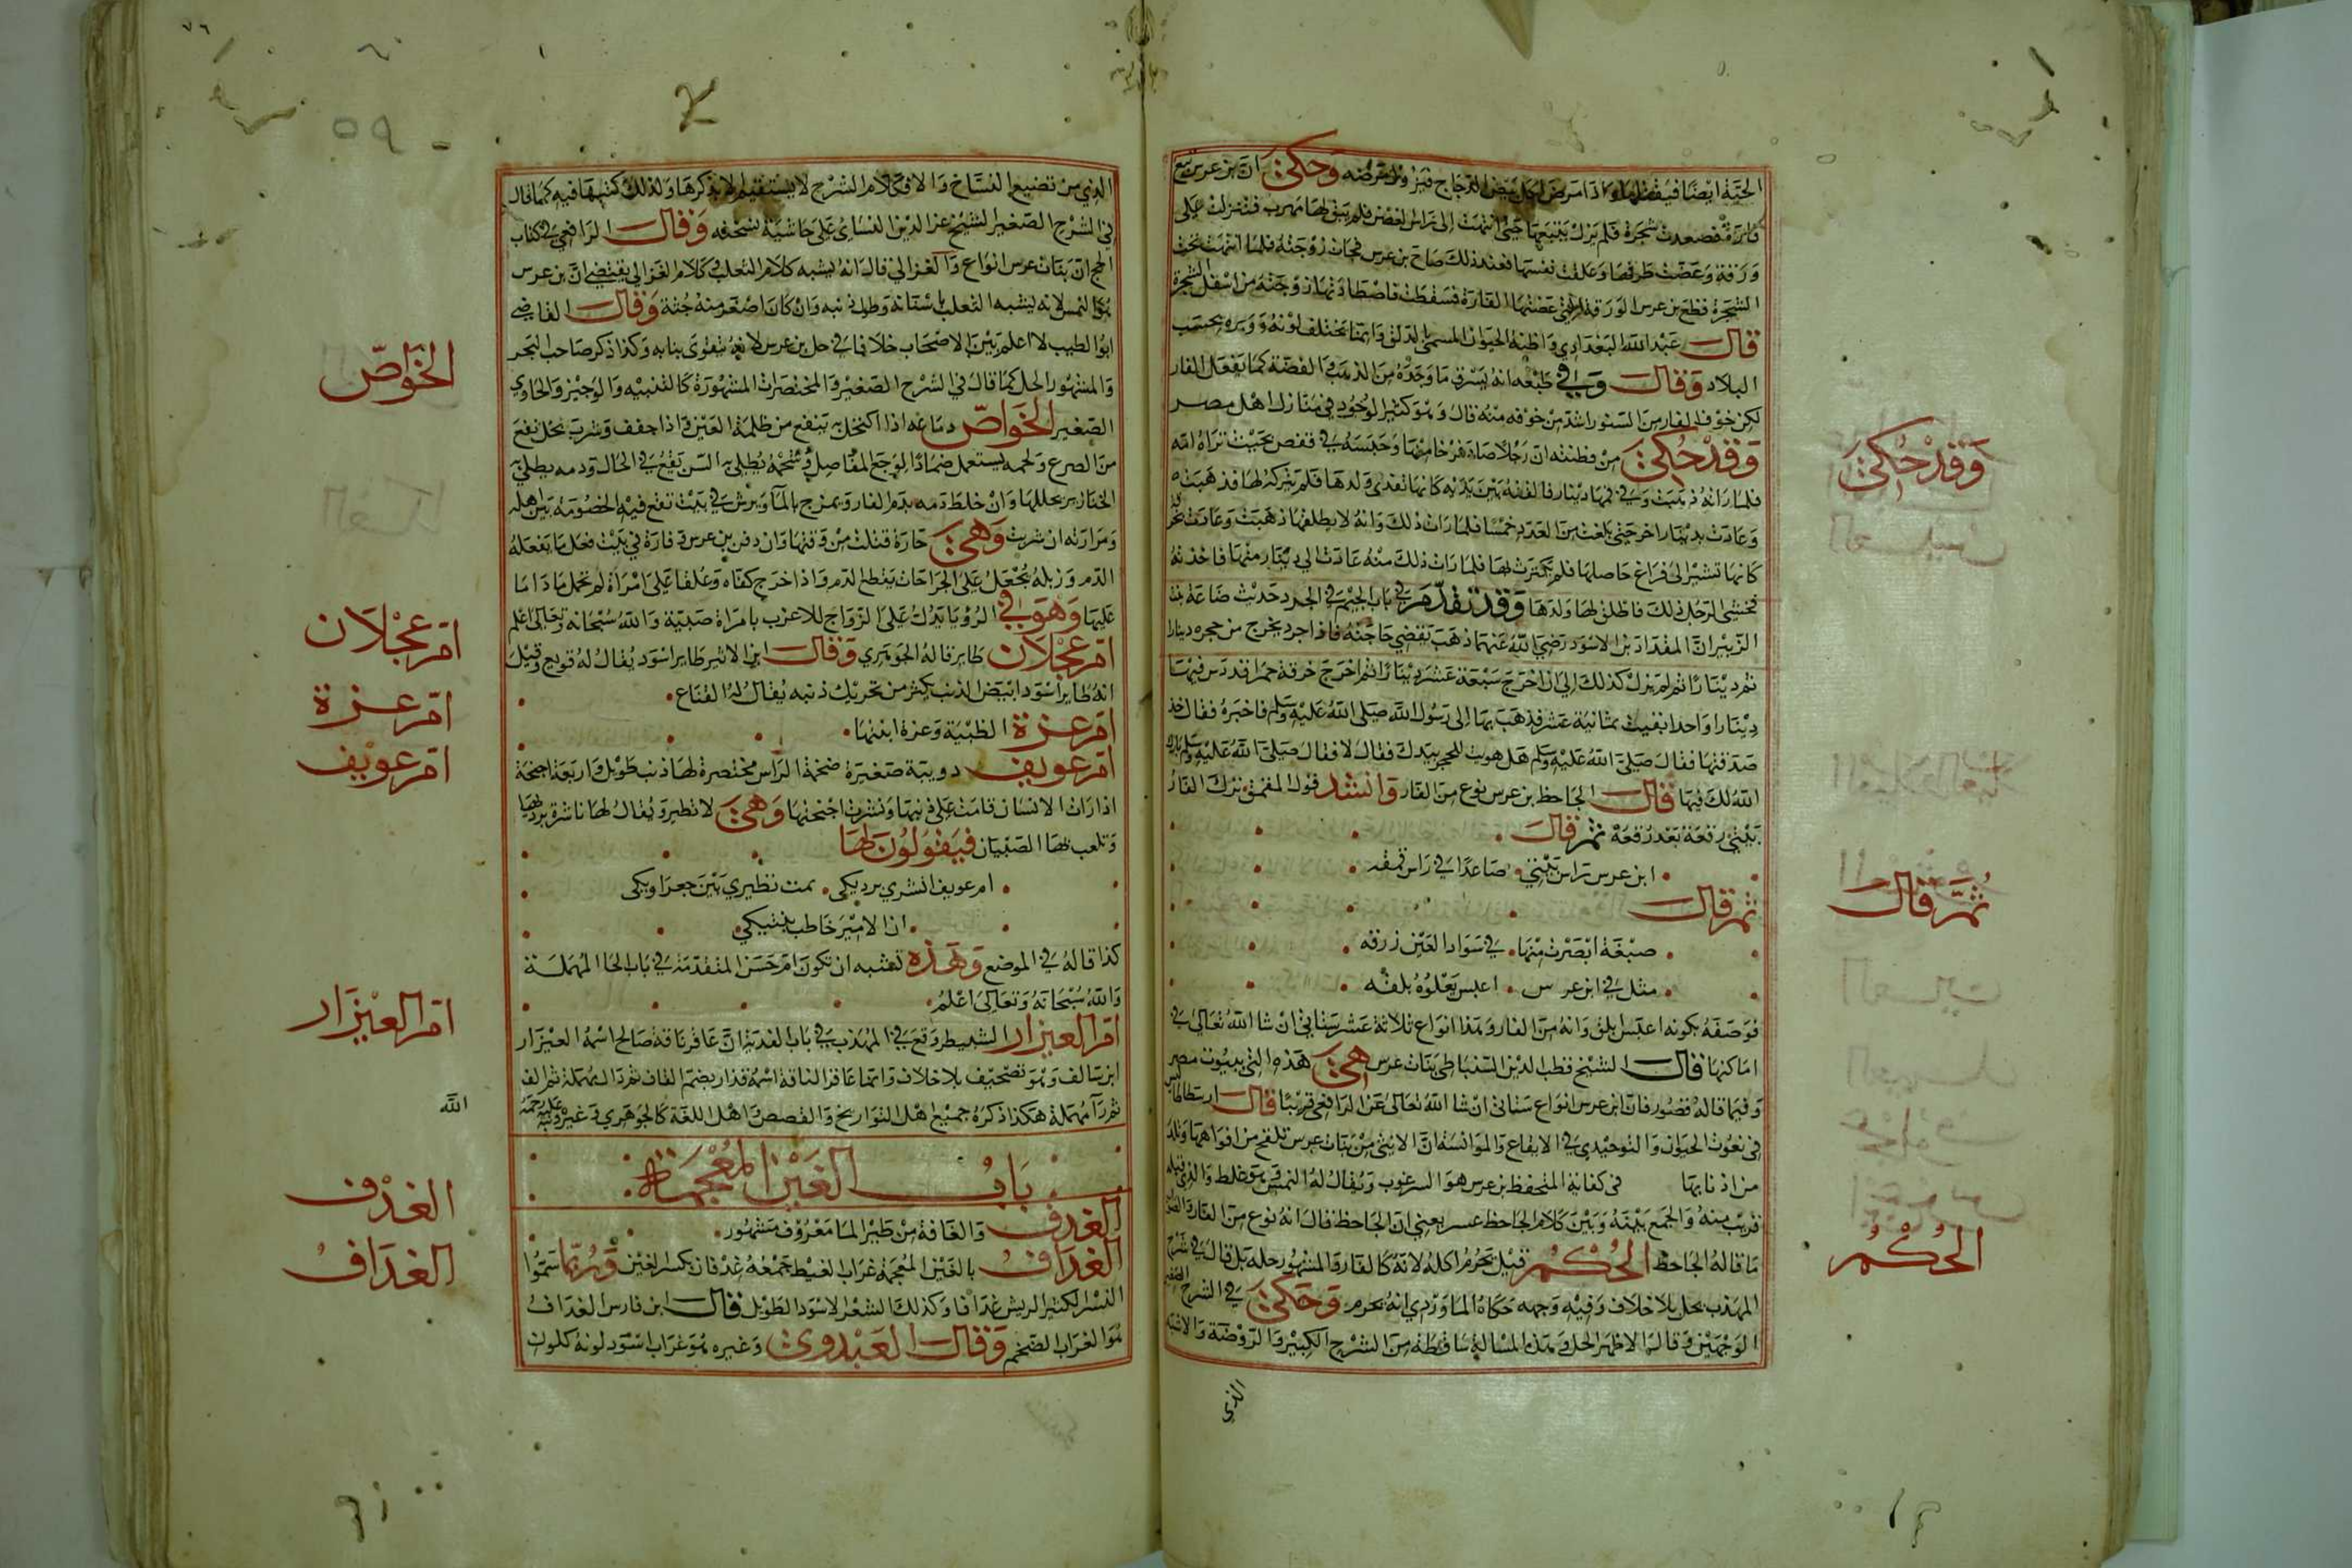 الحية ايضا فيقتلها واذا مرض اكل بيض الدجاج فيزول مرضه وحكي ان ابن عرس تبع
فارة فصعدت شجرة فلم يزل يتبعها حتى انتهت الى راس الغصن فلم يبق لها مهرب فنزلت على
ورقة وعضت طرفها وعلقت نفسها فعند ذلك صاح ابن عرس فجات زوجته فلما انتهت تحت
الشجرة قطع ابن عرس الورقة التي عضتها الفارة فسقطت فاصطادتها زوجته من اسفل الشجرة
قال عبد الله البغدادي واظنه الحيوان المسمى بالدلق وانما تختلف لونه ووبره بحسب
البلاد وقال وفي طبعه انه يسرق ما وجده من الذهب والفضة كما يفعل الفار
لكن خوف الفار من السنور اشد من خوفه منه قال وهو كثير الوجود في منازل اهل مصر
وقد حكي من فطنته ان رجلا صاد فرخا منها وحبسه في قفص بحيث تراه امه
فلما راته ذهبت وفي فمها دينار فالقته بين يديه كانها تفدي ولدها فلم يتركه لها فذهبت
وعادت بدينار اخر حتى بلغت من العدد خمسا فلما رات ذلك وانه لا يطلقه ذهبت وعادت بخر
كانها تشير الى فراغ حاصلها فلم يكترث لها فلما رات ذلك منه عادت الى دينار منها فاخذته
فخشي الرجل ذلك فاطلق لها ولدها وقد تقدم في باب الجيم في الجرد حديث ضباعة بنت
الزبير ان المقداد بن الاسود رضي الله عنهما ذهب يقضي حاجته فاذا جرد يخرج من حجره دينارا
ثم دينارا ثم لم يزل كذلك الى ان اخرج سبعة عشر دينارا ثم اخرج خرقة حمرا قد دس فيها
دينارا واحدا بقيت ثمانية عشر فذهب بها الى رسول الله صلى الله عليه وسلم فاخبره فقال خذ
صدقتها فقال صلى الله عليه وسلم هل هويت للحجر بيدك فقال لا فقال صلى الله عليه وسلم بارك
الله لك فيها قال الجاحظ ابن عرس نوع من الفار وانشد قول المقمقي نزل الفار
بيتي رفقة بعد رفقة ثم قال
ابن عرس راس بيتي صاعدا في راس
ثم قال
صبغة ابصرت منها في سواد العين زرقه
مثل في ابن عرس اغبس يعلوه بلقه
فوصفه بكونه اغبس بلق وانه من الفار وهذا انواع ثلاثة عشر ستاتي ان شا الله تعالى في
اماكنها قال الشيخ قطب الدين السنباطي بنات عرس هي هذه التي ببيوت مصر
وفيما قاله قصور فان ابن عرس انواع ستاتي ان شا الله تعالى عن الرافعي قريبا قال ارسطاطاليس
في نعوت الحيوان والتوحيدي في الايقاع والموانسة ان الانثى من بنات عرس تلقح من افواهها وتلد
من اذنابها في كفاية المتحفظ ابن عرس هو السرعوب ويقال له النمس وهو غلط والذي قبله
قريب منه والجمع بينه وبين كلام الجاحظ عسر يعني ان الجاحظ قال انه نوع من الفار
ما قاله الجاحظ الحكم قيل يحرم اكله لانه كالفار والمشهور حله بل قال في شرح
المهذب يحل بلا خلاف وفيه وجه حكاه الماوردي انه يحرم وحكي في الشرح الصغير
الوجهين وقال الاظهر الحل وهذه المسالة ساقطة من الشرح الكبير والروضة والاشبه
الذي
وقد حكي
ثم قال
الحكم
٧٦
٥٩
الذي من تضييع النساخ والا فكلام الشرح لا يستقيم الا بذكرها ولذلك كتبها فيه كما قال
في الشرح الصغير الشيخ عز الدين النسائي على حاشية نسخه وقال الرافعي في كتاب
الحج ان بنات عرس انواع والغزالي قال انه يشبه كلام الثعلب وكلام الغزالي يقتضي ان ابن عرس
هو النمس لانه يشبه الثعلب باسنانه وطول ذنبه وان كان اصغر منه جثة وقال القاضي
ابو الطيب لا اعلم بين الاصحاب خلافا في حل ابن عرس لانه يتقوى بنابه وكذا ذكر صاحب البحر
والمشهور الحل كما قال في الشرح الصغير والمختصرات المشهورة كالتنبيه والوجيز والحاوي
الصغير الخواص دماغه اذا اكتحل به ينفع من ظلمة العين واذا جفف وشرب بخل نفع
من الصرع ولحمه يستعمل ضمادا لوجع المفاصل وشحمه يطلى به السن يقع في الحال ودمه يطلى به
الخنازير يحللها وان خلط دمه بدم الفار ويمزج بالما ويرش في بيت تقع فيه الخصومة بين اهله
ومرارته ان شربت وهي حارة قتلت من وقتها وان دفن ابن عرس وفارة في بيت فعل ما يفعله
الدم وزبله يجعل على الجراحات يقطع الدم واذا اخرج كفاه وعلقا على امراة لم تحمل ما داما
عليها وهو في الرؤيا يدل على الزواج للاعزب بامراة صبية والله سبحانه وتعالى اعلم
ام عجلان طاير قاله الجوهري وقال ابن الاثير طاير اسود يقال له قوبع وقيل
انه طاير اسود ابيض الذنب يكثر من تحريك ذنبه يقال له الفتاح
ام عزة الظبية وعزة ابنتها
ام عويف دويبة صغيرة ضخمة الراس مختصرة لها ذنب طويل واربعة اجنحة
اذا رات الانسان قامت على ذنبها ونشرت اجنحتها وهي لا تطير ويقال لها ناشرة برديها
وتلعب بها الصبيان فيقولون لها
ام عويف انشري برديكي ثمت نظيري بين جعراويكي
ان الامير خاطب بنتيكي
كذا قاله في الموضع وهذه تشبه ان تكون ام حسن المتقدمة في باب الحا المهملة
والله سبحانه وتعالى اعلم
ام العيزار الشيطر وقع في المهذب في باب الهدنة ان عاقر ناقة صالح اسمه العيزار
ابن سالف وهو تصحيف بلا خلاف وانما عاقر الناقة اسمه قدار بضم القاف ثم دال مهملة ثم الف
ثم را مهملة هكذا ذكره جميع اهل التواريخ والقصص واهل اللغة كالجوهري وغيره رحمة
باب الغين المعجمة
الغدف والغافة من طير الما معروف مشهور
الغداف بالغين المعجمة غراب الغيط جمعه غدفان بكسر الغين وربما سموا
النسر الكثير الريش غدافا وكذلك الشعر الاسود الطويل قال ابن فارس الغداف
هو الغراب الضخم وقال العبدوي وغيره هو غراب اسود لونه كلون
الخواص
ام عجلان
ام عزة
ام عويف
ام العيزار
الله
الغدف
الغداف